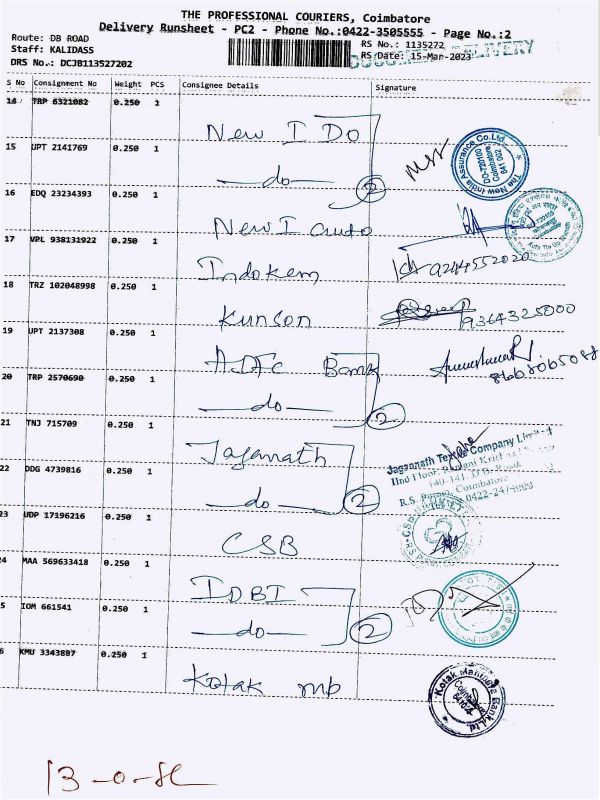 THE PROFESSIONAL COURIERS, Coimbatore
Delivery Runsheet - PC2 - Phone No.:0422-3505555 - Page No.:2
Route: DB ROAD
RS No.: 1135272
Staff: KALIDASS
RS Date: 15-Mar-2023
DELIVERY
DRS No.: DCJB113527202
S No Consignment No Weight PCS Consignee Details Signature
14 TRP 6321082 0.250 1 New I Do
15 UPT 2141769 0.250 1 —do— 2
The New India Assurance Co. Ltd. Coimbatore 641 002
16 EDQ 23234393 0.250 1 New I auto
17 VPL 938131922 0.250 1 Indokem 9244552020
18 TRZ 102048998 0.250 1 Kunson 9364325000
19 UPT 2137308 0.250 1 HDFC Bank
20 TRP 2570690 0.250 1 —do— 2
21 TNJ 715709 0.250 1 Jagannath
Jagannath Textile Company Limited
22 DDG 4739816 0.250 1 —do— 2
Coimbatore
23 UDP 17196216 0.250 1 CSB
24 MAA 569633418 0.250 1 IDBI
5 IOM 661541 0.250 1 —do— 2
6 KMU 3343887 0.250 1 Kotak mp
Kotak Mahindra Bank Ltd Coimbatore